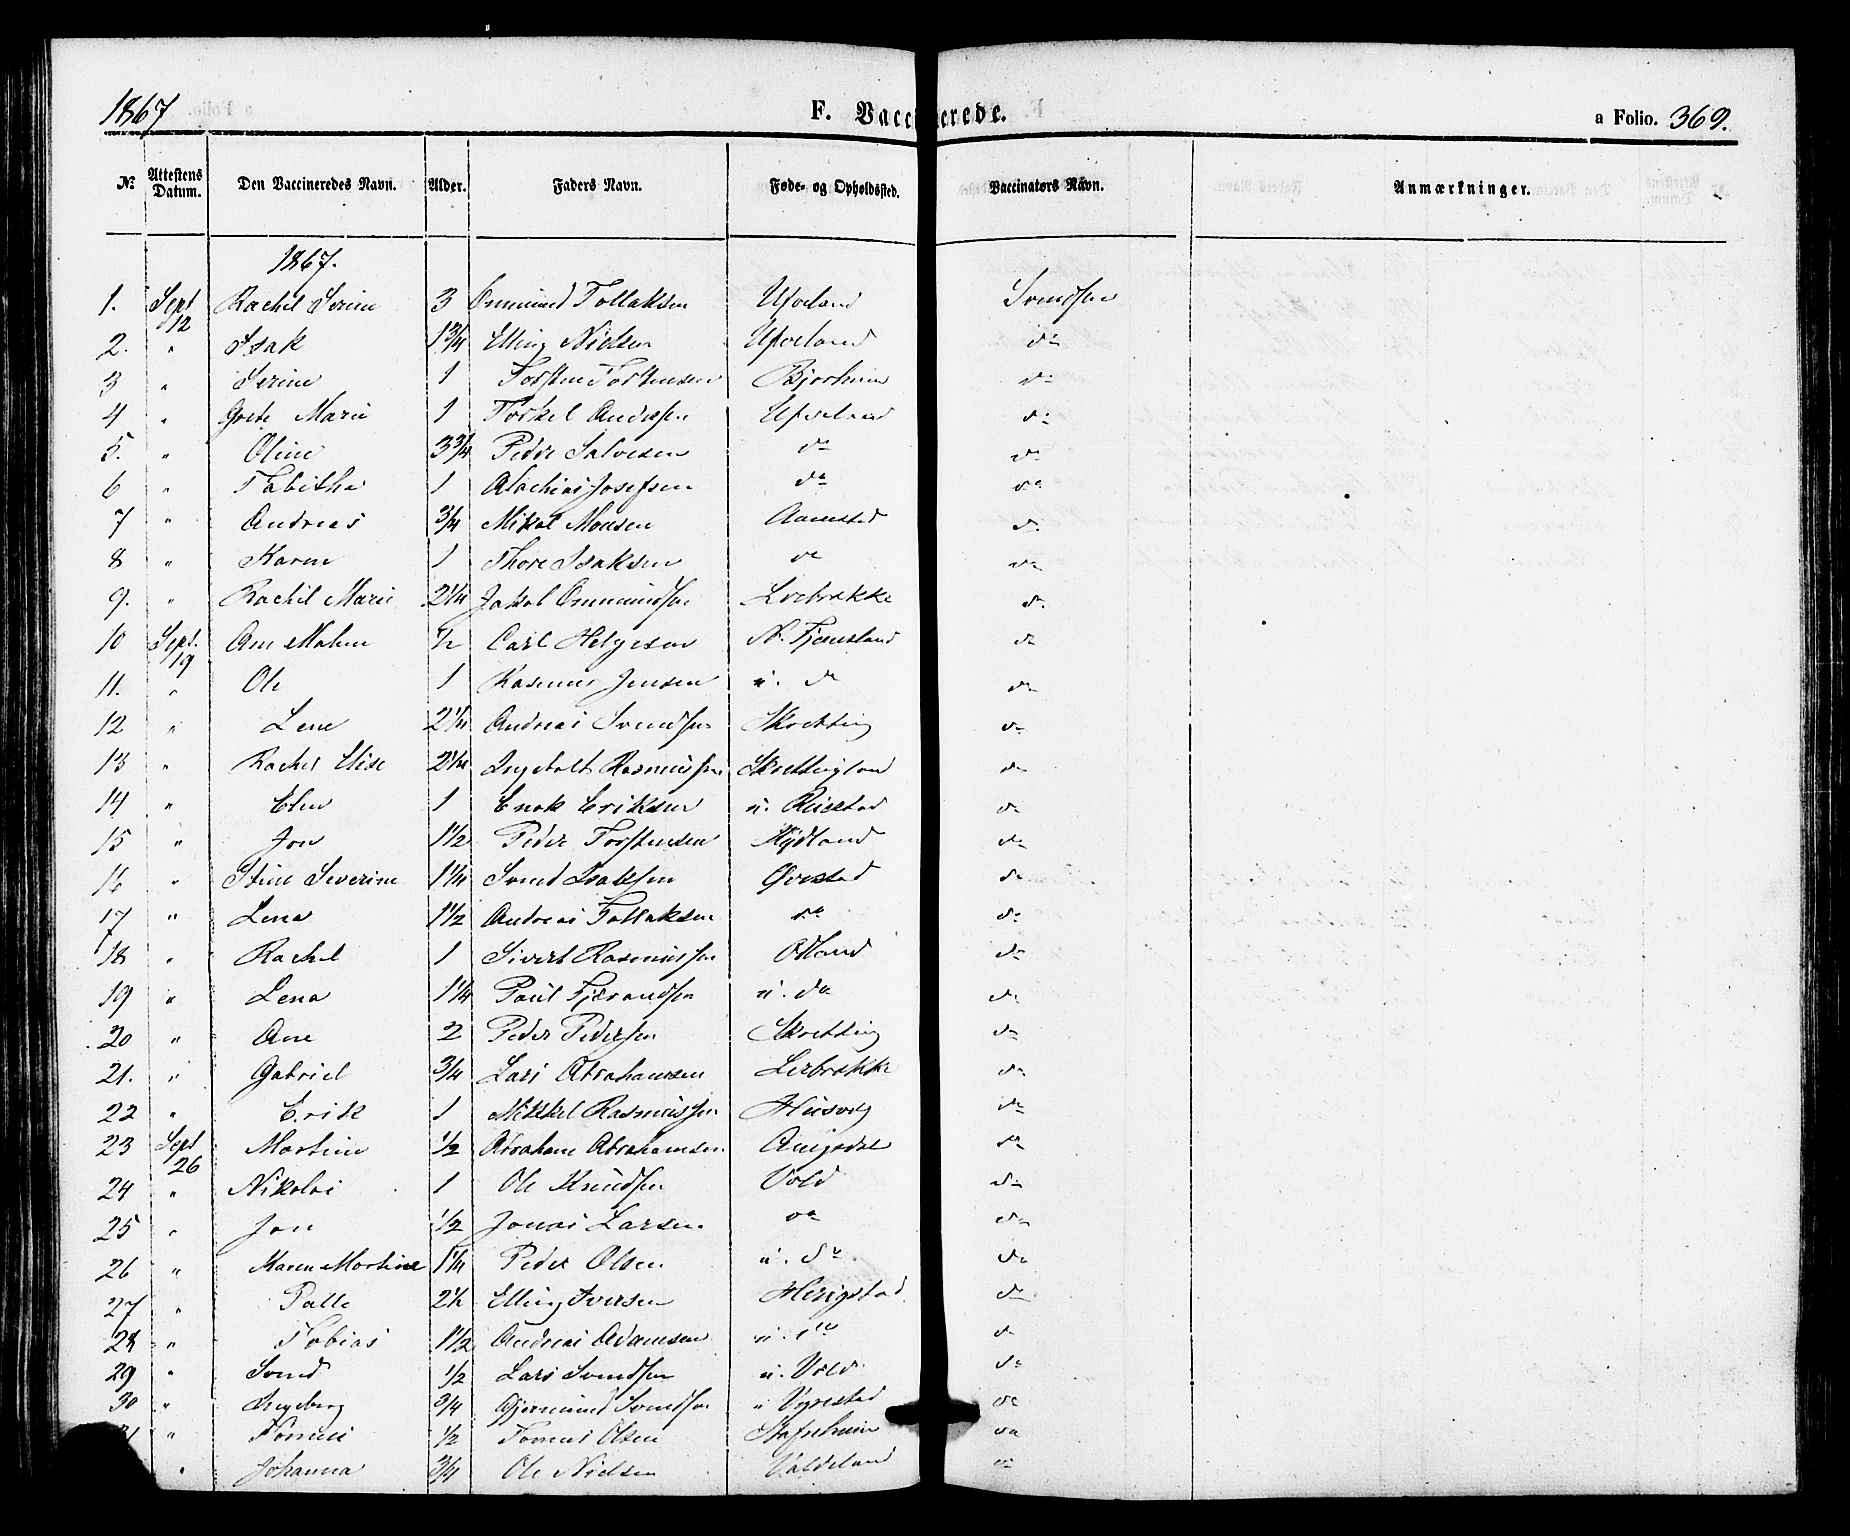 1867 F. Vaccinerede. a Folio. 369.
№ Attestens Datum. Den Vaccineredes Navn. Alder. Faders Navn. Føde- og Opholdssted. Vaccinators Navn. Anmærkninger.
1867.
1. Sept 12 Rachel Serine 3 Ommund Tollaksen Ufveland Svendsen
2. " Isak 1 3/4 Elling Nielsen Ufveland do
3 " Serine 1 Torsten Torstensen Bjorheim do
4 " Grete Marie 1 Torkel Andersen Ufveland do
5. " Oline 3 3/4 Peder Salvesen do do
6 " Tabitha 1 Malachias Josefsen do do
7 " Andreas 3/4 Mikal Monsen Aarrestad do
8 " Karen 1 Thore Isaksen do do
9. " Rachel Marie 2 1/4 Jakob Ommundsen Lerbrække do
10 Sept. 19 Ane Malene 1/2 Carl Helgesen N. Fjermstand do
11. " Ole 1 Rasmus Jensen u. do do
12 " Lene 2 1/4 Andreas Svendsen Skretting do
13 " Rachel Elise 2 1/4 Ingebolt Rasmussen Skrettingland do
14 " Elen 1 Enok Eriksen u. Ruestad do
15 " Jon 1 1/2 Peder Torstensen Hydland do
16 " Stine Severine 1 1/4 Svend Isaksen Øvestad do
17 " Lena 1 1/2 Andreas Tollaksen do do
18 " Rachel 1 Sivert Rasmussen Odland do
19 " Lena 1 1/4 Paul Fjerandsen u. do do
20 " Ane 2 Peder Pedersen Skretting do
21. " Gabriel 3/4 Lars Abrahamsen Lerbrække do
22 " Erik 1 Mikkel Rasmussen Husveg do
23 Sept 26 Martine 1/2 Abraham Abrahamsen Augedal do
24 " Nikolai 1 Ole Knudsen Vold do
25 " Jon 1/2 Jonas Larsen do do
26 " Maren Martine 1 1/4 Peder Olsen u. do do
27 " Palle 2 1/2 Elling Iversen Herigstad do
28 " Tobias 1 1/2 Andreas Adamsen u. do do
29 " Svend 1/2 Lars Svendsen u. Vold do
30 " Ingeborg 3/4 Gjermund Svendsen u Vyrestad do
31 " Tønnes 1/2 Tønnes Olsen Stafnheim do
" Johanna 3/4 Ole Nielsen Valdeland do